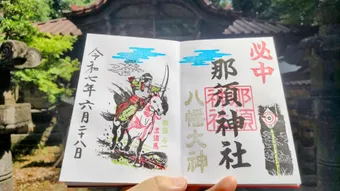 必中
那須神社
八幡大神
令和七年六月二十八日